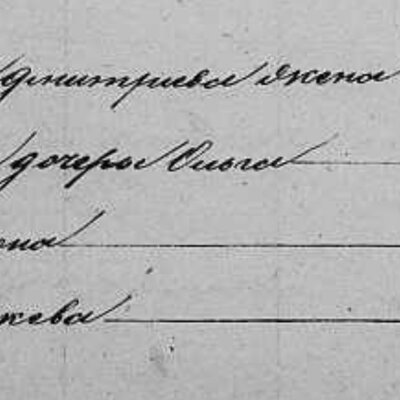 Дмитриева Жена
дочерь Ольга
она
жева